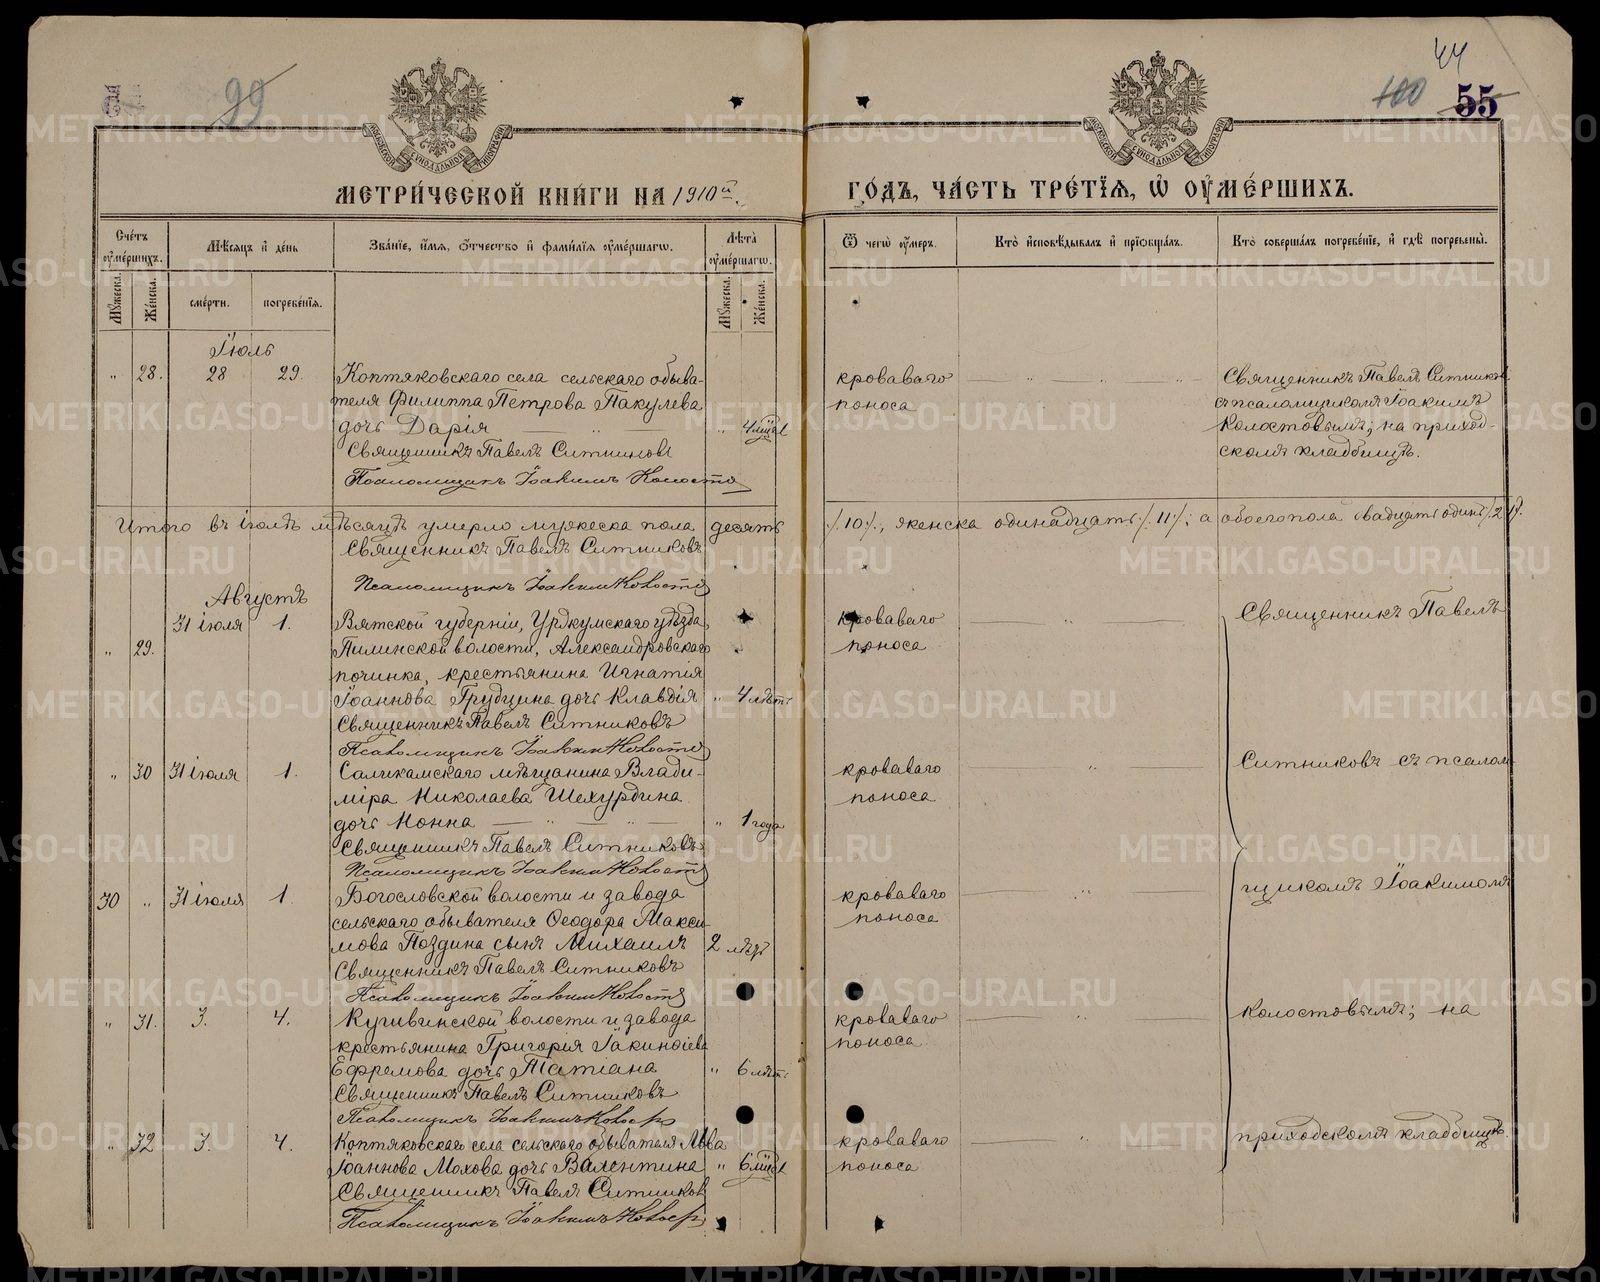 99
44
100
55
МЕТРИ́ЧЕСКОЙ КНИ́ГИ НА 1910й
ГО́ДЪ, ЧА́СТЬ ТРЕ́ТІЯ, Ѡ ОУМЕ́РШИХЪ.
Сче́тъ оуме́ршихъ.
Мѣсяцъ и де́нь
Зва́нїе, и́мя, о́тчество и фами́лїя оуме́ршагѡ.
Лѣта̀ оуме́ршагѡ.
Ѿ чегѡ̀ оу́меръ.
Кто̀ исповѣ́дывалъ и прїобща́лъ.
Кто̀ соверша́лъ погребе́нїе, и гдѣ̀ погребены̀.
Мꙋ́жеска.
Же́нска.
сме́рти.
погребе́нїя.
Мꙋ́жеска.
Же́нска.
Іюль
" 28. 28 29. Коптяковскаго села сельскаго обыва-
теля Филиппа Петрова Пакулева
дочь Дарія — " — " 4 мѣс
Священникъ Павелъ Ситниковъ
Псаломщикъ Іоакимъ Колосто
кроваваго
поноса
Священникъ Павелъ Ситниковъ
съ псаломщикомъ Іоакимъ
Колостовымъ; на приход-
скомъ кладбищѣ.
Итого въ іюлѣ мѣсяцѣ умерло мужеска пола десять /.10./, женска одинадцать /.11./; а обоего пола двадцать одинъ /.21./.
Священникъ Павелъ Ситниковъ
Псаломщикъ Іоакимъ Колосто
Августъ
" 29. 31 іюля 1. Вятской губерніи, Уржумскаго уѣзда,
Пилинской волости, Александровскаго
починка, крестьянина Игнатія
Іоаннова Грубцина дочь Клавдія " 4 лѣтъ
Священникъ Павелъ Ситниковъ
Псаломщикъ Іоакимъ Колосто
кроваваго
поноса
Священникъ Павелъ
" 30 31 іюля 1. Соликамскаго мѣщанина Влади-
міра Николаева Шехурдина
дочь Нонна — " — " — " 1 года
Священникъ Павелъ Ситниковъ
Псаломщикъ Іоакимъ Колосто
кроваваго
поноса
Ситниковъ съ псалом
30 " 31 іюля 1. Богословской волости и завода
сельскаго обывателя Ѳеодора Макси-
мова Поздина сынъ Михаилъ 2 лѣтъ
Священникъ Павелъ Ситниковъ
Псаломщикъ Іоакимъ Колосто
кроваваго
поноса
щикомъ Іоакимомъ
" 31. 3. 4. Кушвинской волости и завода
крестьянина Григорія Іакинѳіева
Ефремова дочь Татіана " 6 лѣтъ
Священникъ Павелъ Ситниковъ
Псаломщикъ Іоакимъ
кроваваго
поноса
Колостовымъ; на
" 32 3. 4. Коптяковскаго села сельскаго обывателя Льва
Іоаннова Мохова дочь Валентина " 6 мѣс
Священникъ Павелъ Ситников
Псаломщикъ Іоакимъ
кроваваго
поноса
приходскомъ кладбищѣ.
METRIKI.GASO-URAL.RU